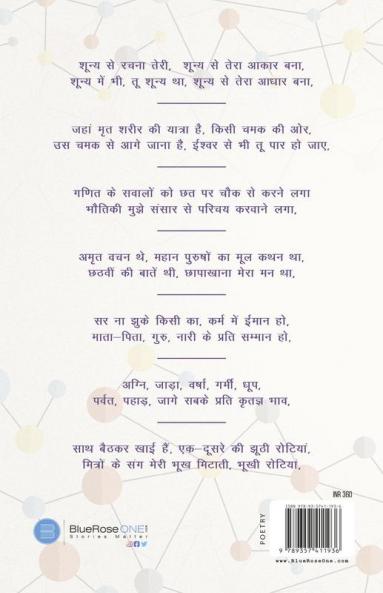 शून्य से रचना तेरी, शून्य से तेरा आकार बना,
शून्य में भी, तू शून्य था, शून्य से तेरा आधार बना,
जहां मृत शरीर की यात्रा है, किसी चमक की ओर,
उस चमक से आगे जाना है, ईश्वर से भी तू पार हो जाए,
गणित के सवालों को छत पर चौक से करने लगा
भौतिकी मुझे संसार से परिचय करवाने लगा,
अमृत वचन थे, महान पुरुषों का मूल कथन था,
छठवीं की बातें थी, छापाखाना मेरा मन था,
सर ना झुके किसी का, कर्म में ईमान हो,
माता–पिता, गुरु, नारी के प्रति सम्मान हो,
अग्नि, जाड़ा, वर्षा, गर्मी, धूप,
पर्वत, पहाड़, जागे सबके प्रति कृतज्ञ भाव,
साथ बैठकर खाई हैं, एक–दूसरे की झूठी रोटियां,
मित्रों के संग मेरी भूख मिटाती, भूखी रोटियां,
INR 360
POETRY
ISBN 978-93-5741-193-6
9 789357 411936
www.BlueRoseOne.com
B
BlueRose ONE
Stories Matter